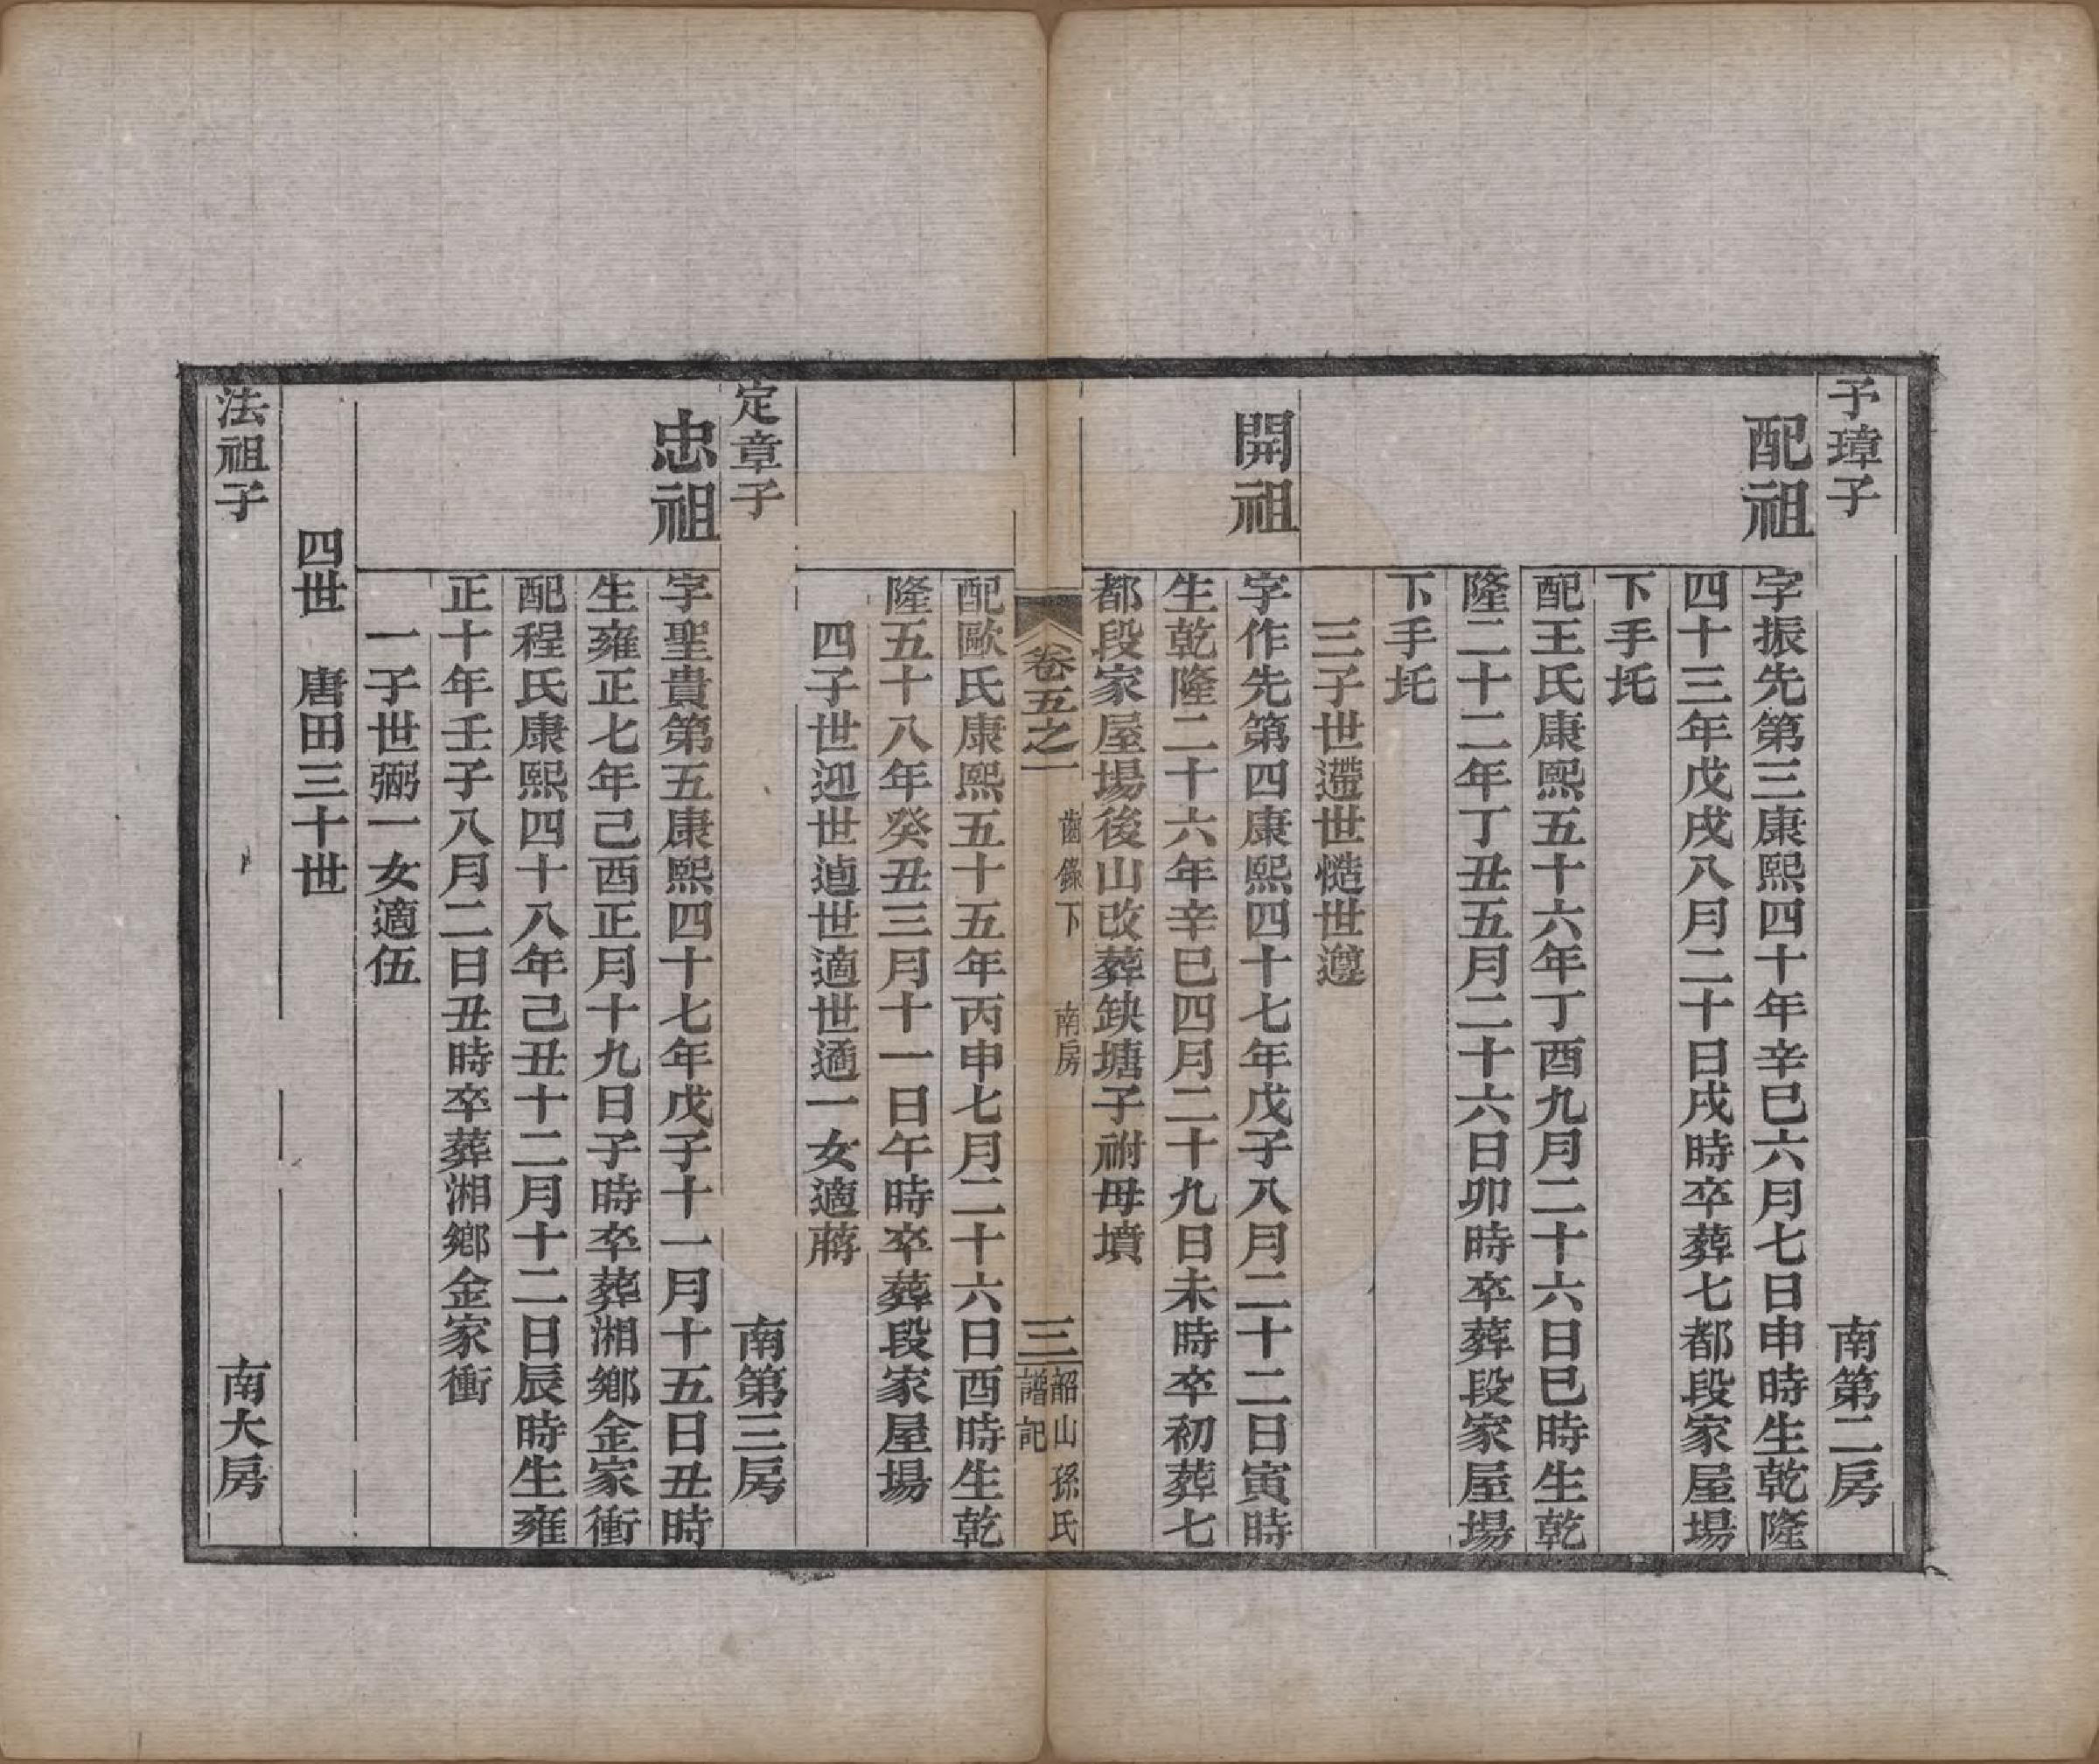 予璋子　南第二房
配祖　字振先第三康熙四十年辛巳六月七日申時生乾隆
四十三年戊戌八月二十日戌時卒葬七都段家屋場
下手圫
配王氏康熙五十六年丁酉九月二十六日巳時生乾
隆二十二年丁丑五月二十六日卯時卒葬段家屋場
下手圫
三子世遰世慥世遵
開祖　字作先第四康熙四十七年戊子八月二十二日寅時
生乾隆二十六年辛巳四月二十九日未時卒初葬七
都段家屋場後山改葬缺塘子祔母墳
卷五之一　齒錄下　南房　三　韶山孫氏譜記
配歐氏康熙五十五年丙申七月二十六日酉時生乾
隆五十八年癸丑三月十一日午時卒葬段家屋場
四子世迎世逌世適世逎一女適蔣
定章子　南第三房
忠祖　字聖貴第五康熙四十七年戊子十一月十五日丑時
生雍正七年己酉正月十九日子時卒葬湘鄉金家衝
配程氏康熙四十八年己丑十二月十二日辰時生雍
正十年壬子八月二日丑時卒葬湘鄉金家衝
一子世弼一女適伍
四世　唐田三十世
法祖子　南大房